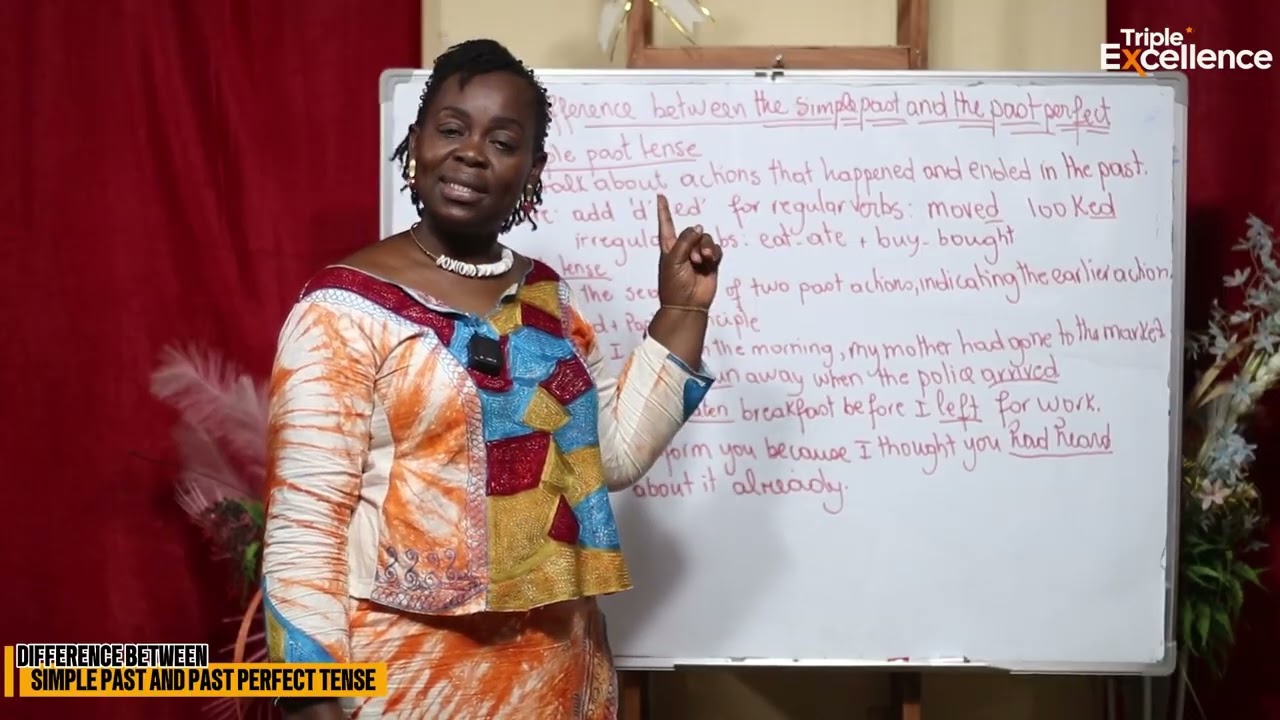 Triple
Excellence
fference between the simple past and the past perfect
ple past tense
talk about actions that happened and ended in the past.
re: add 'd' 'ed' for regular verbs: moved looked
irregul bs: eat-ate + buy-bought
tense
the se of two past actions, indicating the earlier action.
d + Pa ciple
I n the morning, my mother had gone to the market
un away when the police arrived
aten breakfast before I left for work.
form you because I thought you had heard
about it already.
DIFFERENCE BETWEEN
SIMPLE PAST AND PAST PERFECT TENSE